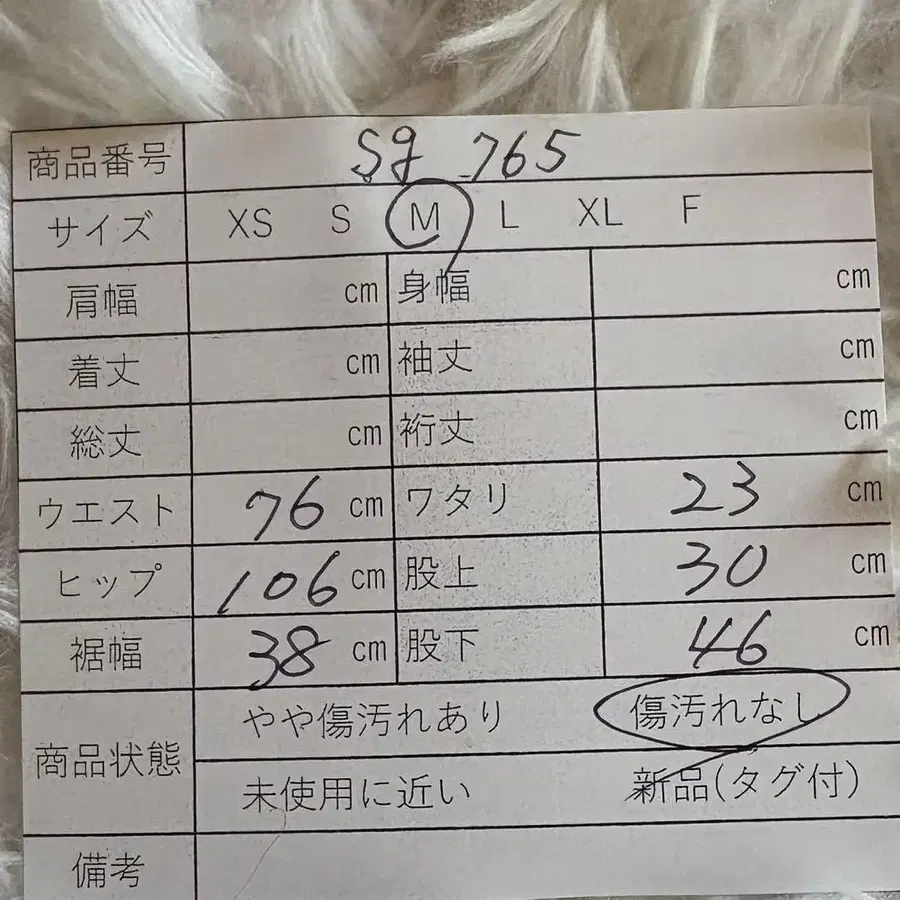 商品番号 sg 765
サイズ XS S M L XL F
肩幅 cm 身幅 cm
着丈 cm 袖丈 cm
総丈 cm 裄丈 cm
ウエスト 76 cm ワタリ 23 cm
ヒップ 106 cm 股上 30 cm
裾幅 38 cm 股下 46 cm
商品状態 やや傷汚れあり 傷汚れなし
未使用に近い 新品(タグ付)
備考